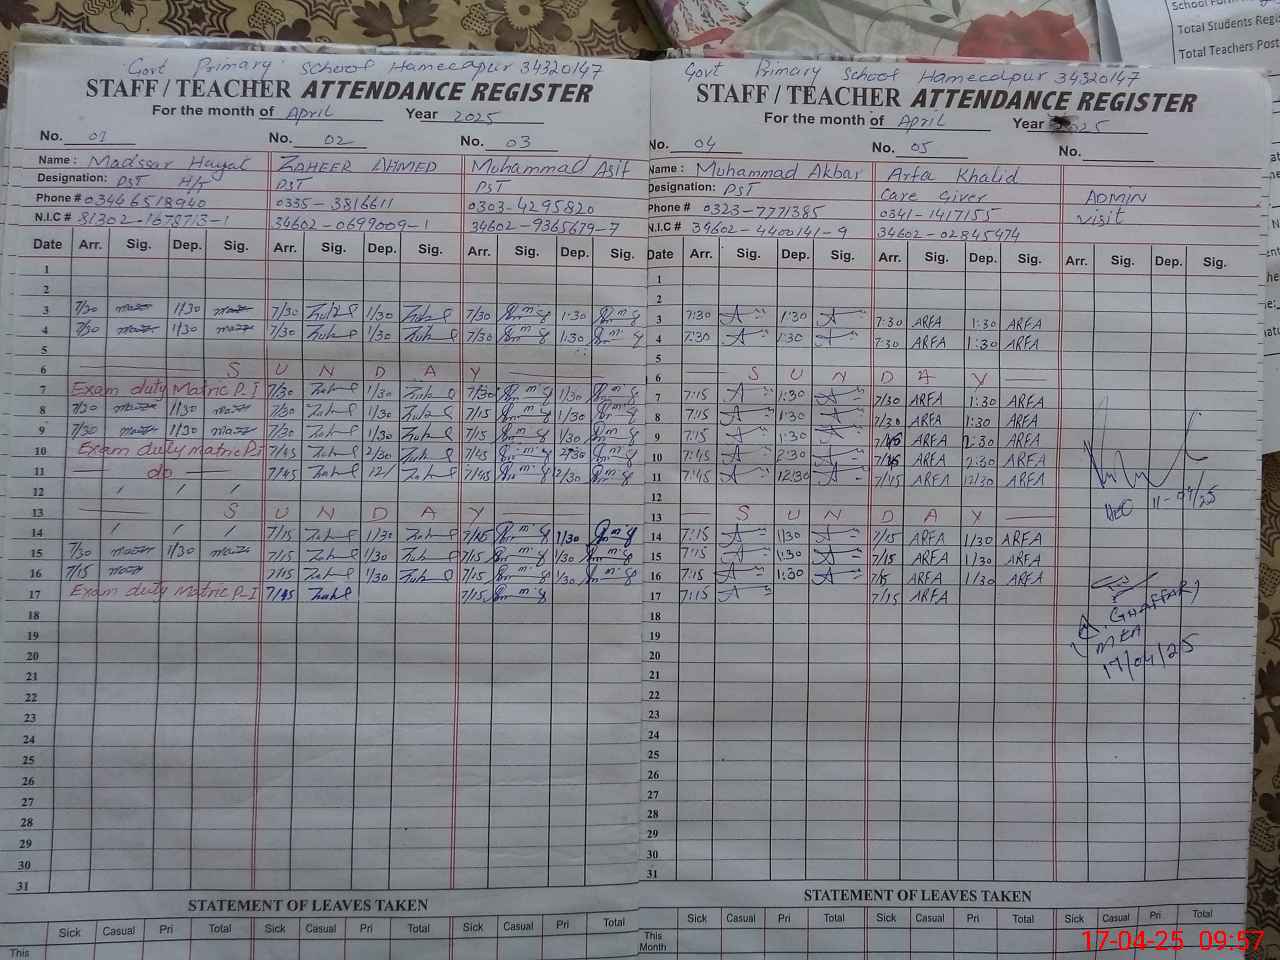 School
Total Students Reg
Total Teachers Post
Govt Primary School Hameedpur 34320147
STAFF / TEACHER ATTENDANCE REGISTER
For the month of April Year 2025
No. 01 No. 02 No. 03
Name : Madssar Hayat ZAHEER AHMED Muhammad Asif
Designation: PST H/T PST PST
Phone # 03446518940 0335-3816611 0303-4295820
N.I.C # 81302-1678713-1 34602-0699009-1 34602-9365679-7
Date Arr. Sig. Dep. Sig. Arr. Sig. Dep. Sig. Arr. Sig. Dep. Sig.
1
2
3 7/30 1/30 7/30 1/30 7/30 1:30
4 7/30 1/30 7/30 1/30 7/30 1:30
5
6 S U N D A Y
7 Exam duty Matric P-I 7/30 1/30 7/30 1/30
8 7/30 1/30 7/30 1/30 7/15 1/30
9 7/30 1/30 7/30 1/30 7/15 1/30
10 Exam duty matric P-I 7/45 2/30 7/45 2/30
11 do 7/45 12/ 7/45 12/30
12
13 S U N D A Y
14 7/15 1/30 7/15 1/30
15 7/30 1/30 7/15 1/30 7/15 1/30
16 7/15 7/15 1/30 7/15 1/30
17 Exam duty Matric P-I 7/45 7/15
18
19
20
21
22
23
24
25
26
27
28
29
30
31
STATEMENT OF LEAVES TAKEN
Sick Casual Pri Total Sick Casual Pri Total Sick Casual Pri Total
This
Govt Primary School Hameedpur 34320147
STAFF / TEACHER ATTENDANCE REGISTER
For the month of April Year 2025
No. 04 No. 05 No.
Name : Muhammad Akbar Arfa Khalid
Designation: PST Care Giver ADMIN
Phone # 0323-7771385 0341-1417155 visit
N.I.C # 34602-4400141-9 34602-02845474
Date Arr. Sig. Dep. Sig. Arr. Sig. Dep. Sig. Arr. Sig. Dep. Sig.
1
2
3 7:30 1:30 7:30 ARFA 1:30 ARFA
4 7:30 1:30 7:30 ARFA 1:30 ARFA
5
6 S U N D A Y
7 7:15 1:30 7/30 ARFA 1:30 ARFA
8 7:15 1:30 7/30 ARFA 1:30 ARFA
9 7:15 1:30 ARFA 1:30 ARFA
10 7:45 2:30 ARFA 2:30 ARFA
11 7:45 12:30 7/45 ARFA 12/30 ARFA
12
13 S U N D A Y
14 7:15 1/30 7/15 ARFA 1/30 ARFA
15 7:15 1:30 7/15 ARFA 1/30 ARFA
16 7:15 1:30 7/15 ARFA 1/30 ARFA
17 7:15 7/15 ARFA
18
19
20
21
22
23
24
25
26
27
28
29
30
31
11-04/25
A. GHAFFAR
MEA
17/04/25
STATEMENT OF LEAVES TAKEN
Sick Casual Pri Total Sick Casual Pri Total Sick Casual Pri Total
This
Month
17-04-25 09:57